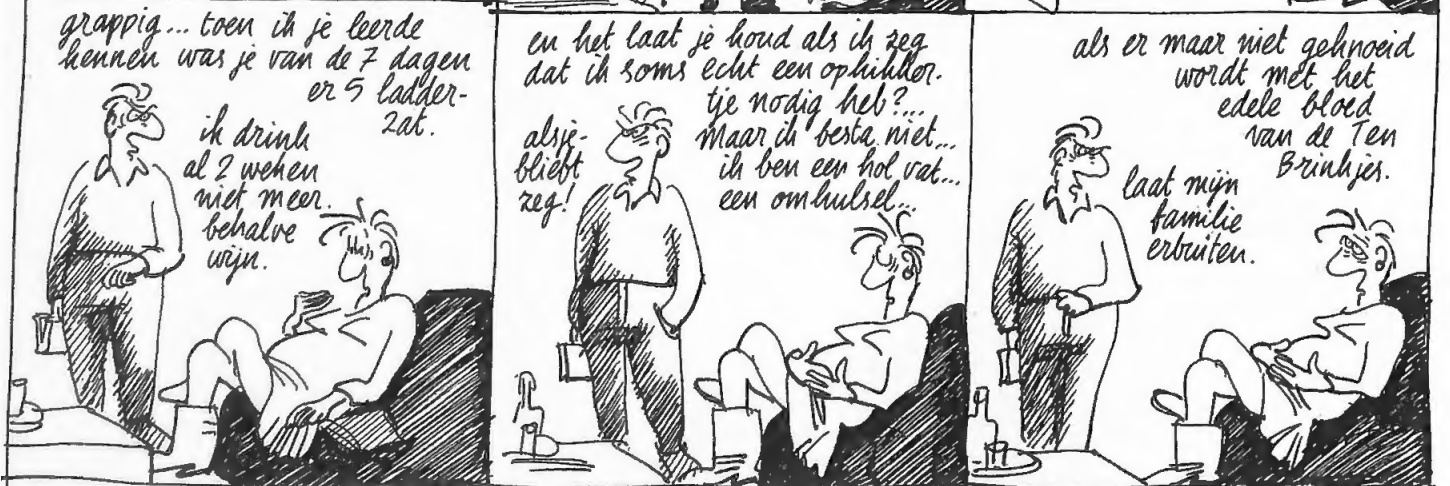 grappig... toen ik je leerde
kennen was je van de 7 dagen
er 5 ladder-
zat.
ik drink
al 2 weken
niet meer.
behalve
wijn.
en het laat je koud als ik zeg
dat ik soms echt een opkikker-
tje nodig heb?...
alsje-
blieft
zeg!
maar ik besta niet...
ik ben een hol vat...
een omhulsel...
als er maar niet geknoeid
wordt met het
edele bloed
van de Ten
Brinkjes.
laat mijn
familie
erbuiten.